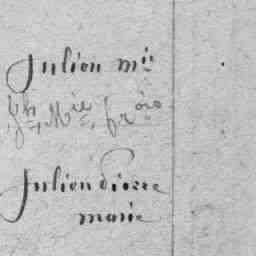 Julien mie
Jh Mie frois
Julien pierre
marie